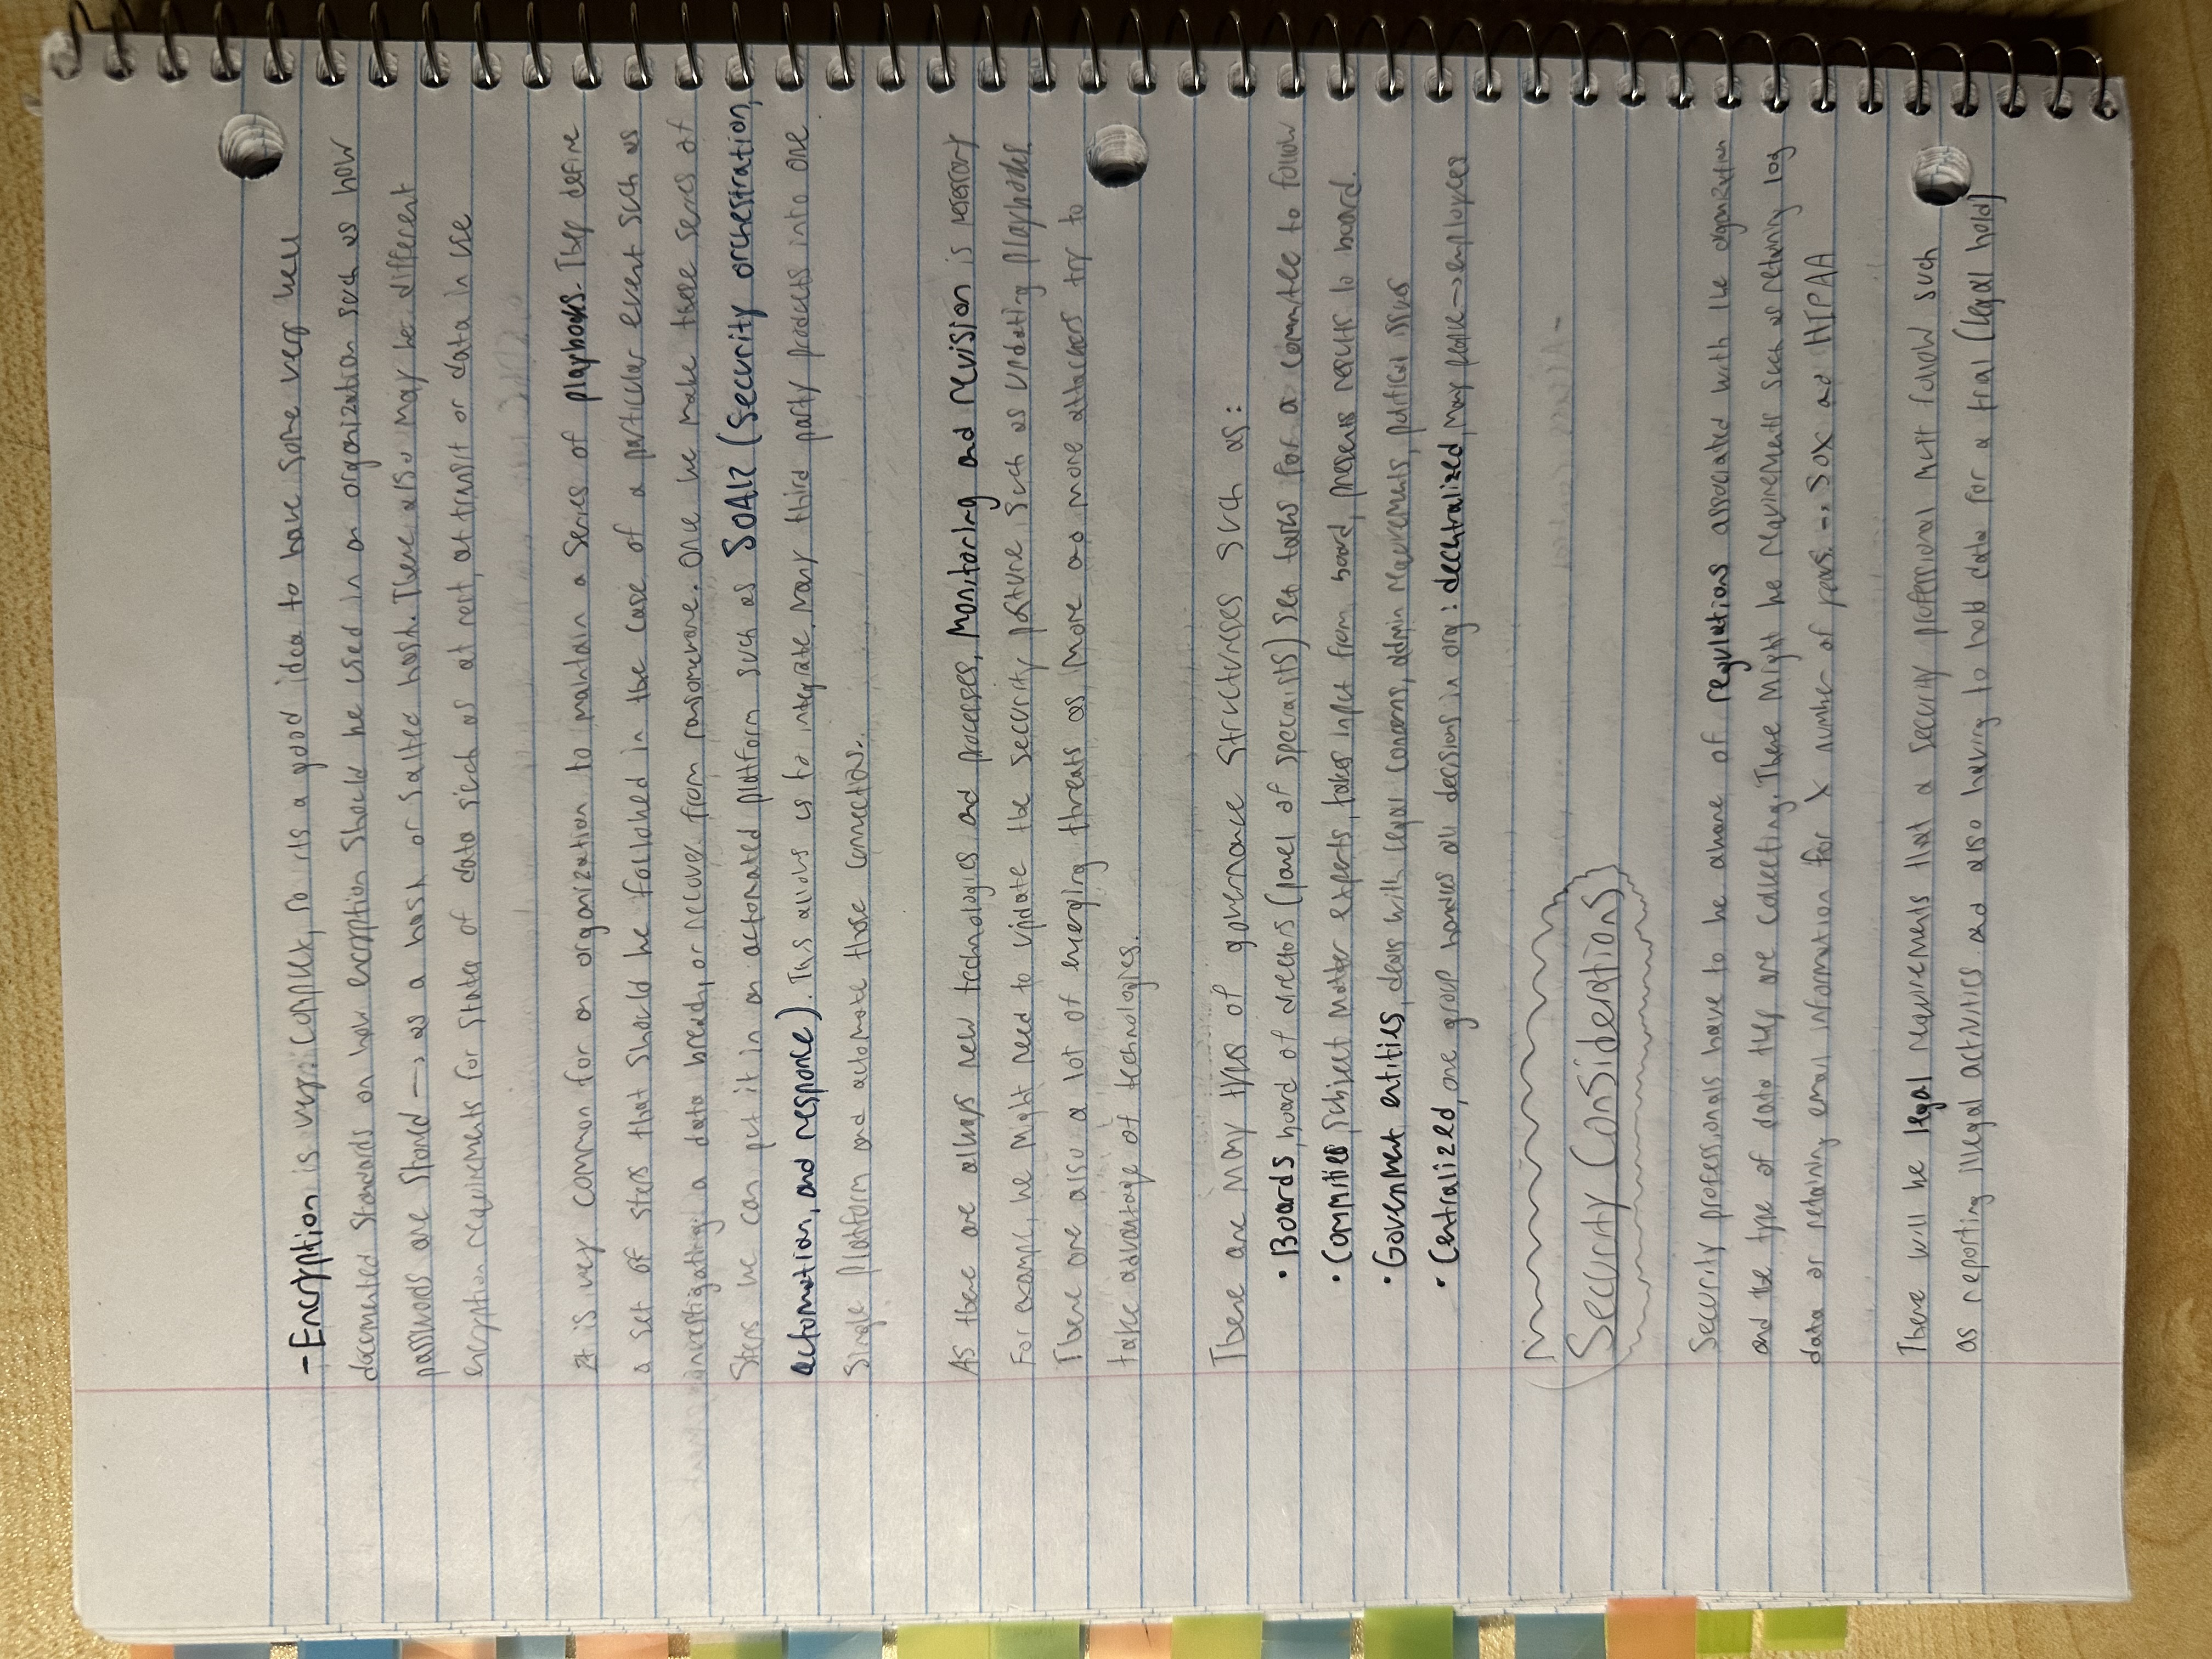 - Encryption is very complex, so its a good idea to have some very well
documented standards on how encryption should be used in an organization such as how
passwords are stored → as a hash or salted hash. There also may be different
encryption requirements for states of data such as at rest, at transit or data in use
It is very common for an organization to maintain a series of playbooks. They define
a set of steps that should be followed in the case of a particular event such as
investigating a data breach, or recover from ransomware. Once we make these series of
steps we can put it in an automated platform such as SOAR (security orchestration,
automation, and response). This allows us to integrate many third party products into one
single platform and automate those connections.
As there are always new technologies and processes, monitoring and revision is necessary
For example, we might need to update the security posture such as updating playbooks.
There are also a lot of emerging threats as more and more attackers try to
take advantage of technologies.
There are many types of governance structureses such as:
• Boards, board of directors (panel of specialists) set tasks for a committee to follow
• Committies, subject matter experts, takes input from board, presents results to board.
• Government entities, deals with legal concerns, admin requirements, political issues
• Centralized, one group handles all decisions in org: decentralized, many people → employees
Security Considerations
Security professionals have to be aware of regulations associated with the organization
and the type of data they are collecting. There might be requirements such as retaining log
data or retaining email information for X number of years. → SOX and HIPAA
There will be legal requirements that a security professional must follow such
as reporting illegal activities and also having to hold data for a trial (legal hold)